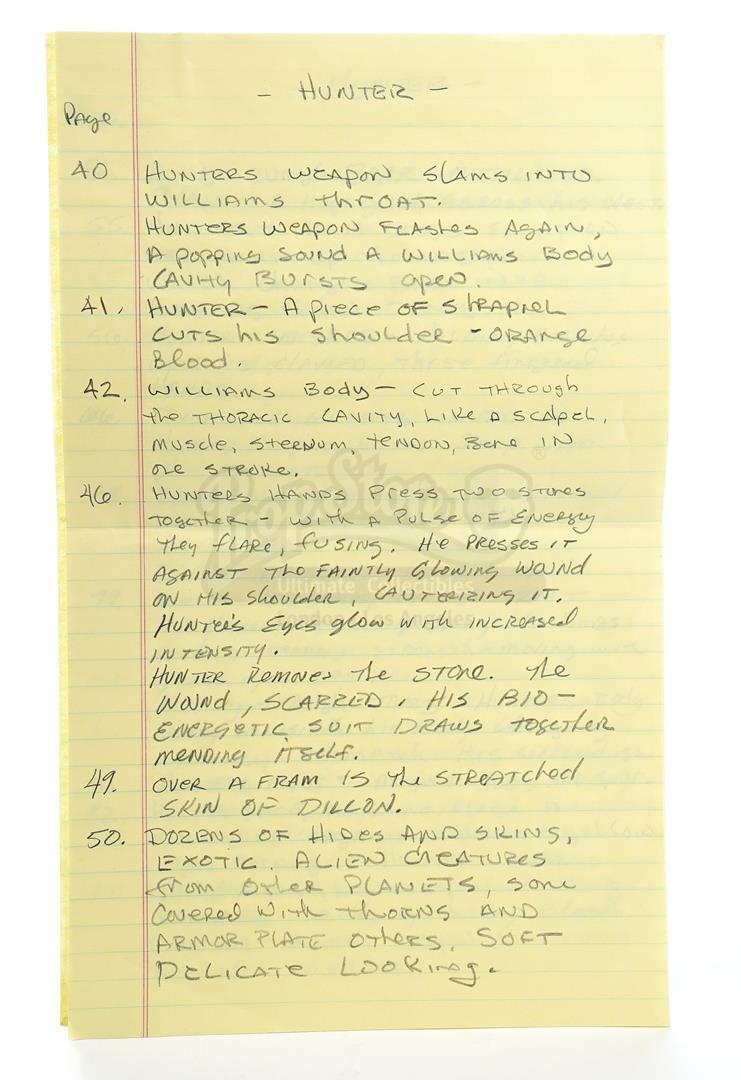 - HUNTER -
Page
40 HUNTERS WEAPON SLAMS INTO
WILLIAMS THROAT.
HUNTERS WEAPON FLASHES AGAIN,
A POPPING SOUND A WILLIAMS BODY
CAVITY BURSTS OPEN.
41. HUNTER - A PIECE OF SHRAPNEL
CUTS HIS SHOULDER - ORANGE
BLOOD.
42. WILLIAMS BODY - CUT THROUGH
THE THORACIC CAVITY, LIKE A SCALPEL,
MUSCLE, STERNUM, TENDON, BONE IN
ONE STROKE.
46. HUNTERS HANDS PRESS TWO STONES
TOGETHER - WITH A PULSE OF ENERGY
THEY FLARE, FUSING. HE PRESSES IT
AGAINST THE FAINTLY GLOWING WOUND
ON HIS SHOULDER, CAUTERIZING IT.
HUNTER'S EYES GLOW WITH INCREASED
INTENSITY.
HUNTER REMOVES THE STONE. THE
WOUND, SCARRED, HIS BIO-
ENERGETIC SUIT DRAWS TOGETHER
MENDING ITSELF.
49. OVER A FRAM IS THE STREATCHED
SKIN OF DILLON.
50. DOZENS OF HIDES AND SKINS,
EXOTIC. ALIEN CREATURES
FROM OTHER PLANETS, SOME
COVERED WITH THORNS AND
ARMOR PLATE OTHERS, SOFT
DELICATE LOOKING.
Prop Store
®
Ultimate Collectibles